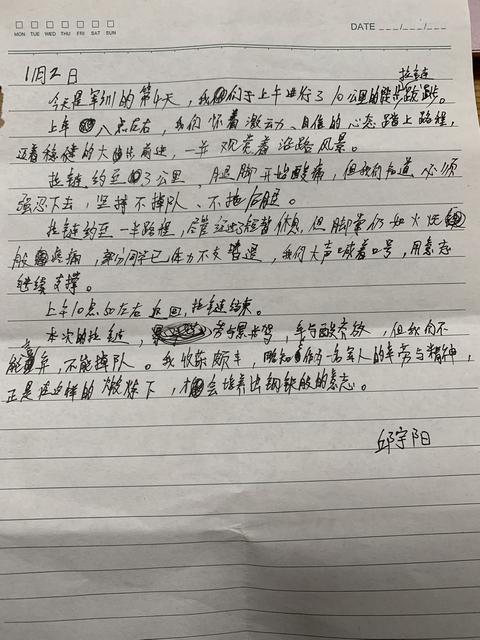 MON TUE WED THU FRI SAT SUN
DATE ___/___/___
11月2日
拉链
今天是军训的第4天，我们于上午进行了10公里的徒步
上午八点左右，我们怀着激动、自信的心态踏上路程，
迈着稳健的大步前进，一并观赏着沿路风景。
拉链约至3公里，腿脚开始酸痛，但我们知道，必须
强忍下去，坚持不掉队、不拖后腿。
拉链约至一半路程，尽管经过了短暂休息，但脚掌仍如火烧
般疼痛，部分同学已体力不支
，我们大声喊着口号，用意志
继续支撑。
上午10点50左右返回，拉链结束。
本次的拉链，
，但我们不
能弃，不能掉队。我收获颇丰，
作为一名军人的辛劳与精神，
正是在这样的
炼下，才会培养出钢铁般的意志。
邱宇阳